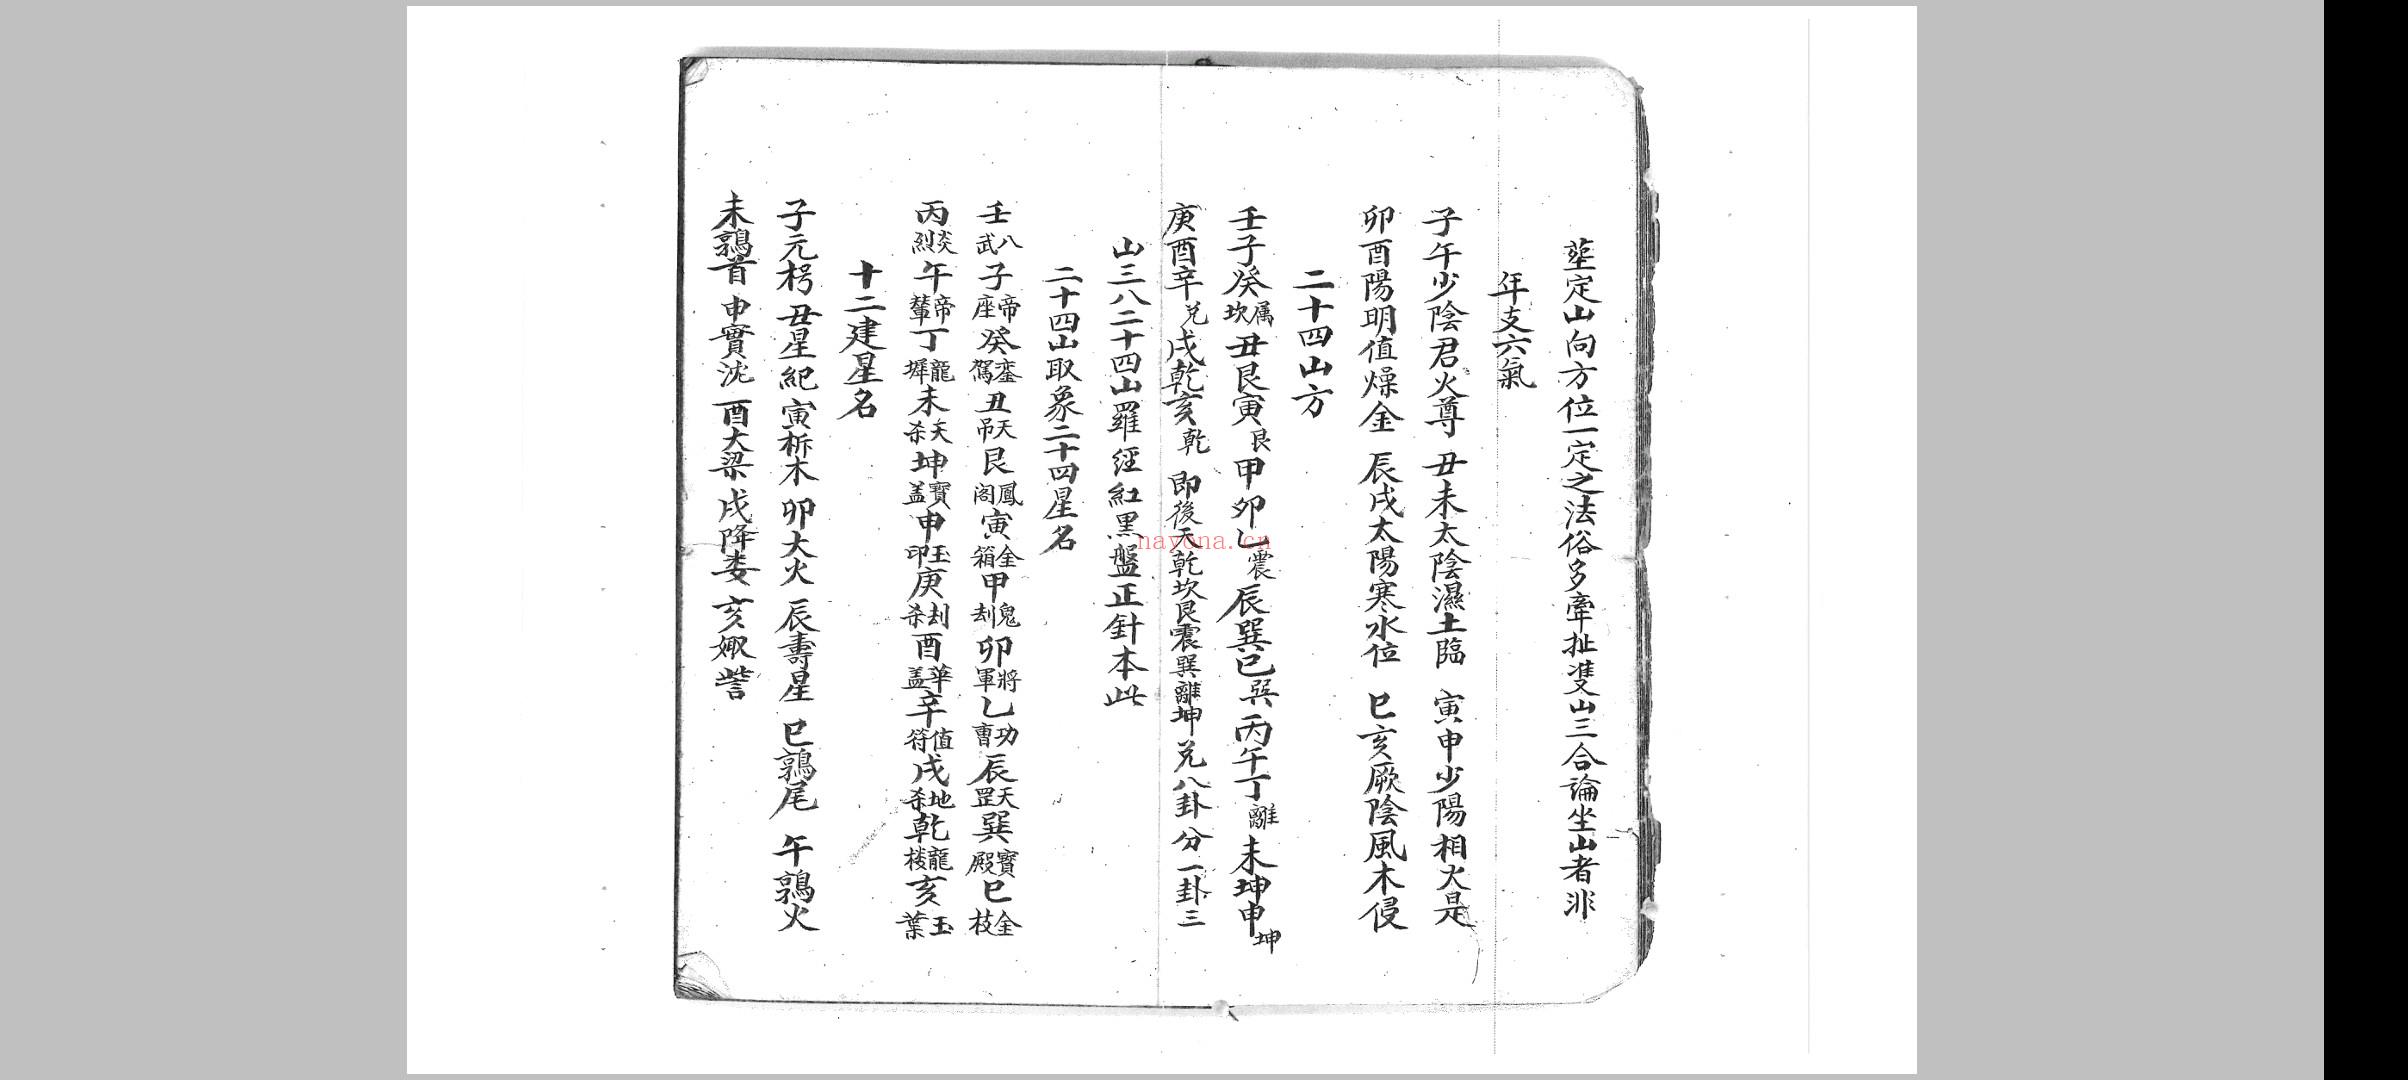 塟定山向方位一定之法俗多牽扯雙山三合論坐山者非
年支六氣
子午少陰君火尊 丑未太陰濕土臨 寅申少陽相火是
卯酉陽明值燥金 辰戌太陽寒水位 巳亥厥陰風木侵
二十四山方
壬子癸属坎 丑艮寅艮 甲卯乙震 辰巽巳巽 丙午丁離 未坤申坤
庚酉辛兑 戌乾亥乾 即後天乾坎艮震巽離坤兑八卦分一卦三
山三八二十四山羅經紅黑盤正針本此
二十四山取象二十四星名
壬八武 子帝座 癸鸾駕 丑天吊 艮鳳阁 寅金箱 甲鬼刦 卯將軍 乙功曹 辰天罡 巽寶殿 巳金枝
丙炎烈 午帝輦 丁龍墀 未天杀 坤寶盖 申玉印 庚刦杀 酉華盖 辛值符 戌地杀 乾龍楼 亥玉葉
十二建星名
子元枵 丑星紀 寅析木 卯大火 辰壽星 巳鶉尾 午鶉火
未鶉首 申實沈 酉大梁 戌降娄 亥娵訾
nayona.cn